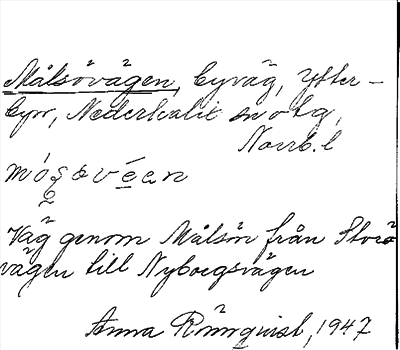 Målsövägen, byväg, Ytter-
byn, Nederkalix sn o tg,
Norrb. l
Väg genom Målsön från Storö
vägen till Nyborgsvägen
Anna Rönnqvist, 1947